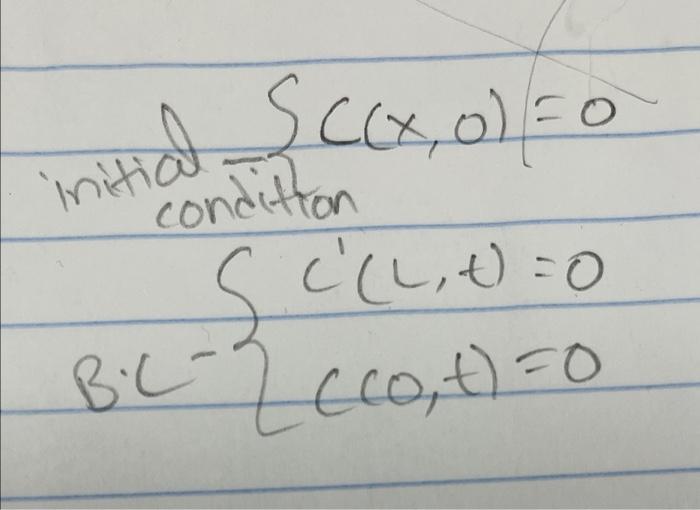 initial condition - { C(x,0) = 0
B.C - { C'(L,t) = 0
C(0,t) = 0